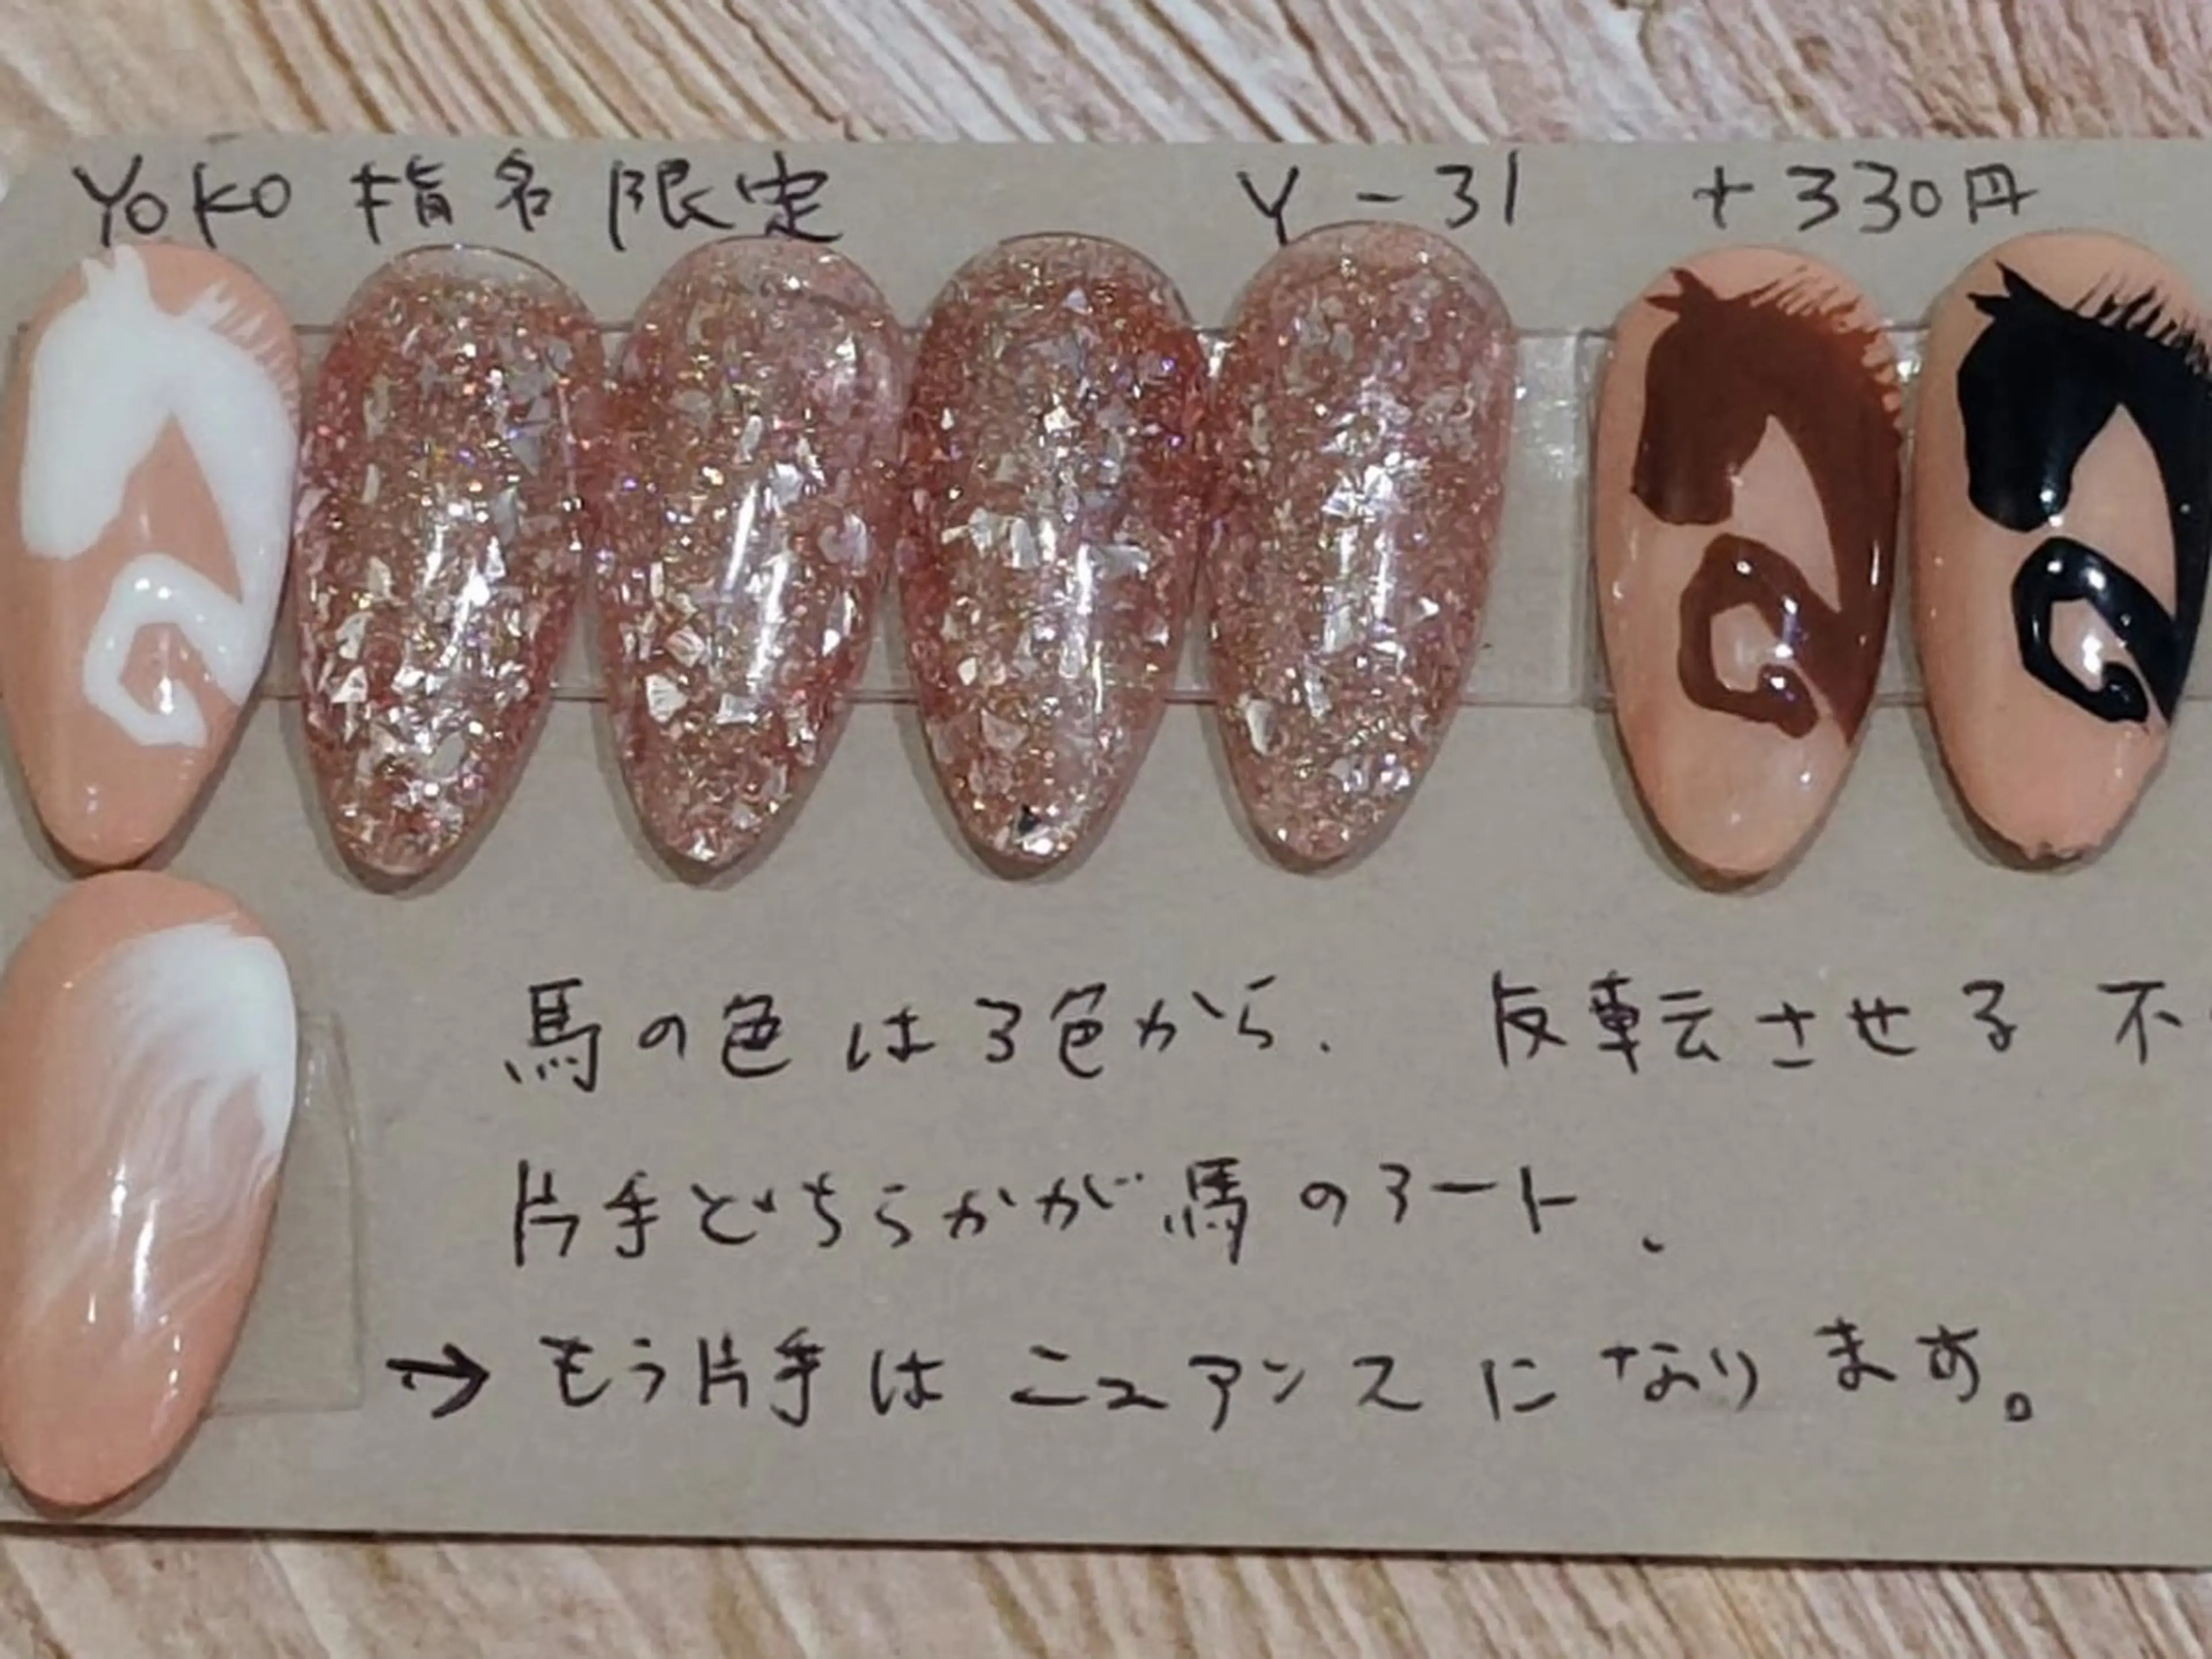 YOKO 指名限定 Y-31 +330円
馬の色は3色から. 反転させる 不
片手どちらかが馬のアート.
→もう片手はニュアンスになります。